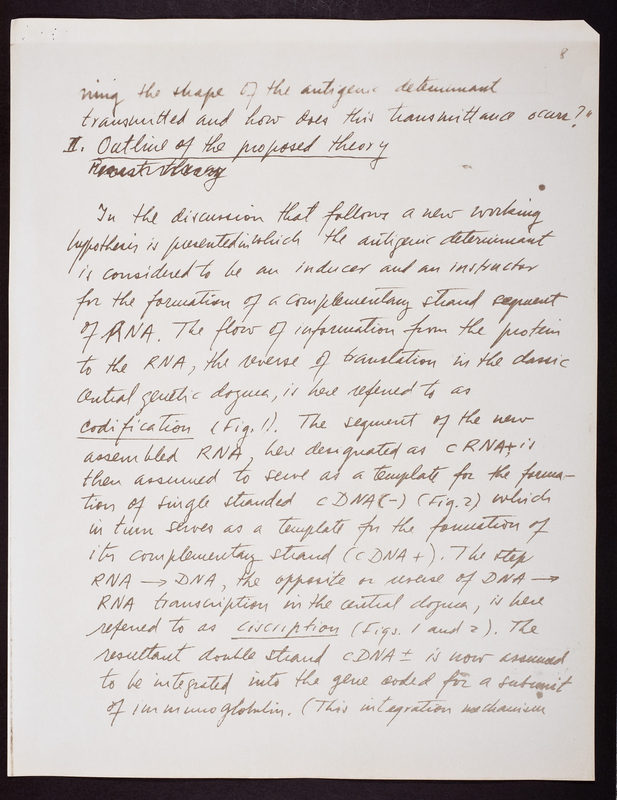 8
ning the shape of the antigenic determinant
transmitted and how does this transmittance occur?"
II. Outline of the proposed theory
In the discussion that follows a new working
hypothesis is presented in which the antigenic determinant
is considered to be an inducer and an instructor
for the formation of a complementary strand segment
of RNA. The flow of information from the protein
to the RNA, the reverse of translation in the classic
central genetic dogma, is here referred to as
codification (Fig. 1). The segment of the new
assembled RNA, here designated as cRNA+, is
then assumed to serve as a template for the forma-
tion of single stranded cDNA(-) (Fig. 2) which
in turn serves as a template for the formation of
its complementary strand (cDNA+). The step
RNA → DNA, the opposite or reverse of DNA →
RNA transcription in the central dogma, is here
referred to as ciscription (Figs. 1 and 2). The
resultant double strand cDNA± is now assumed
to be integrated into the gene coded for a subunit
of immunoglobulin. (This integration mechanism